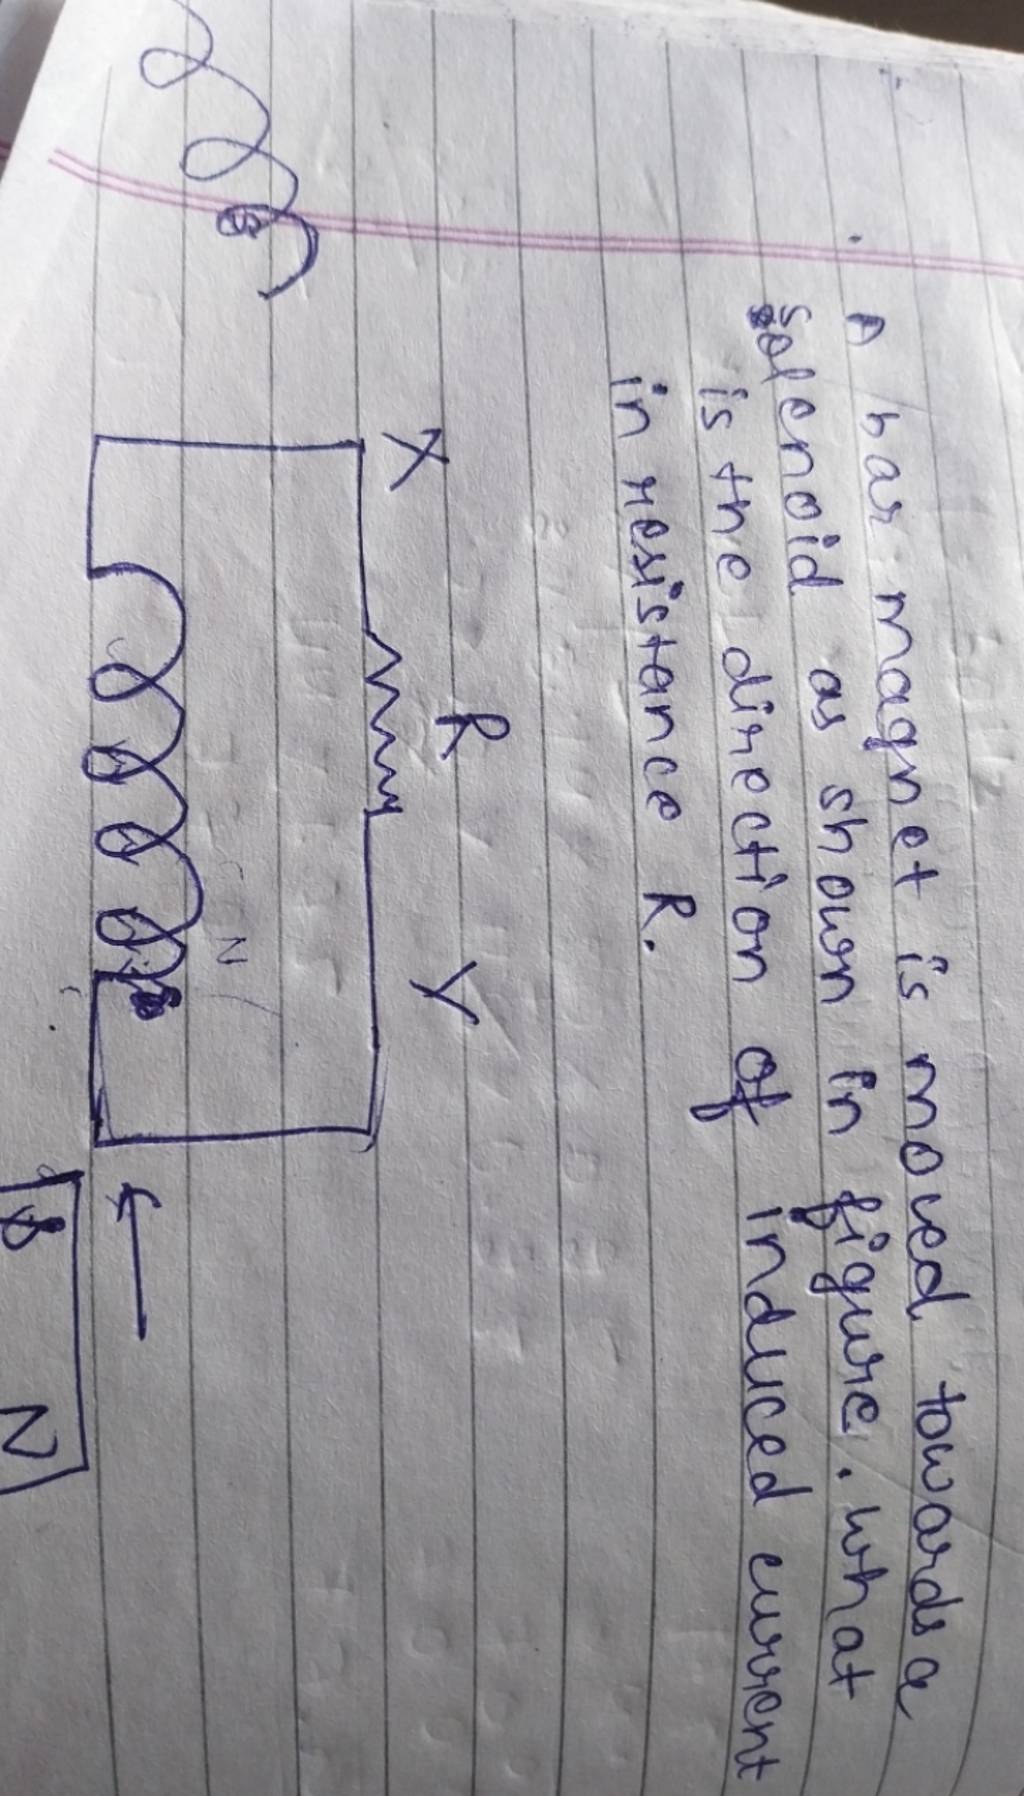 A bar magnet is moved towards a
solenoid as shown in figure. What
is the direction of induced current
in resistance R.
X R Y
N
S N